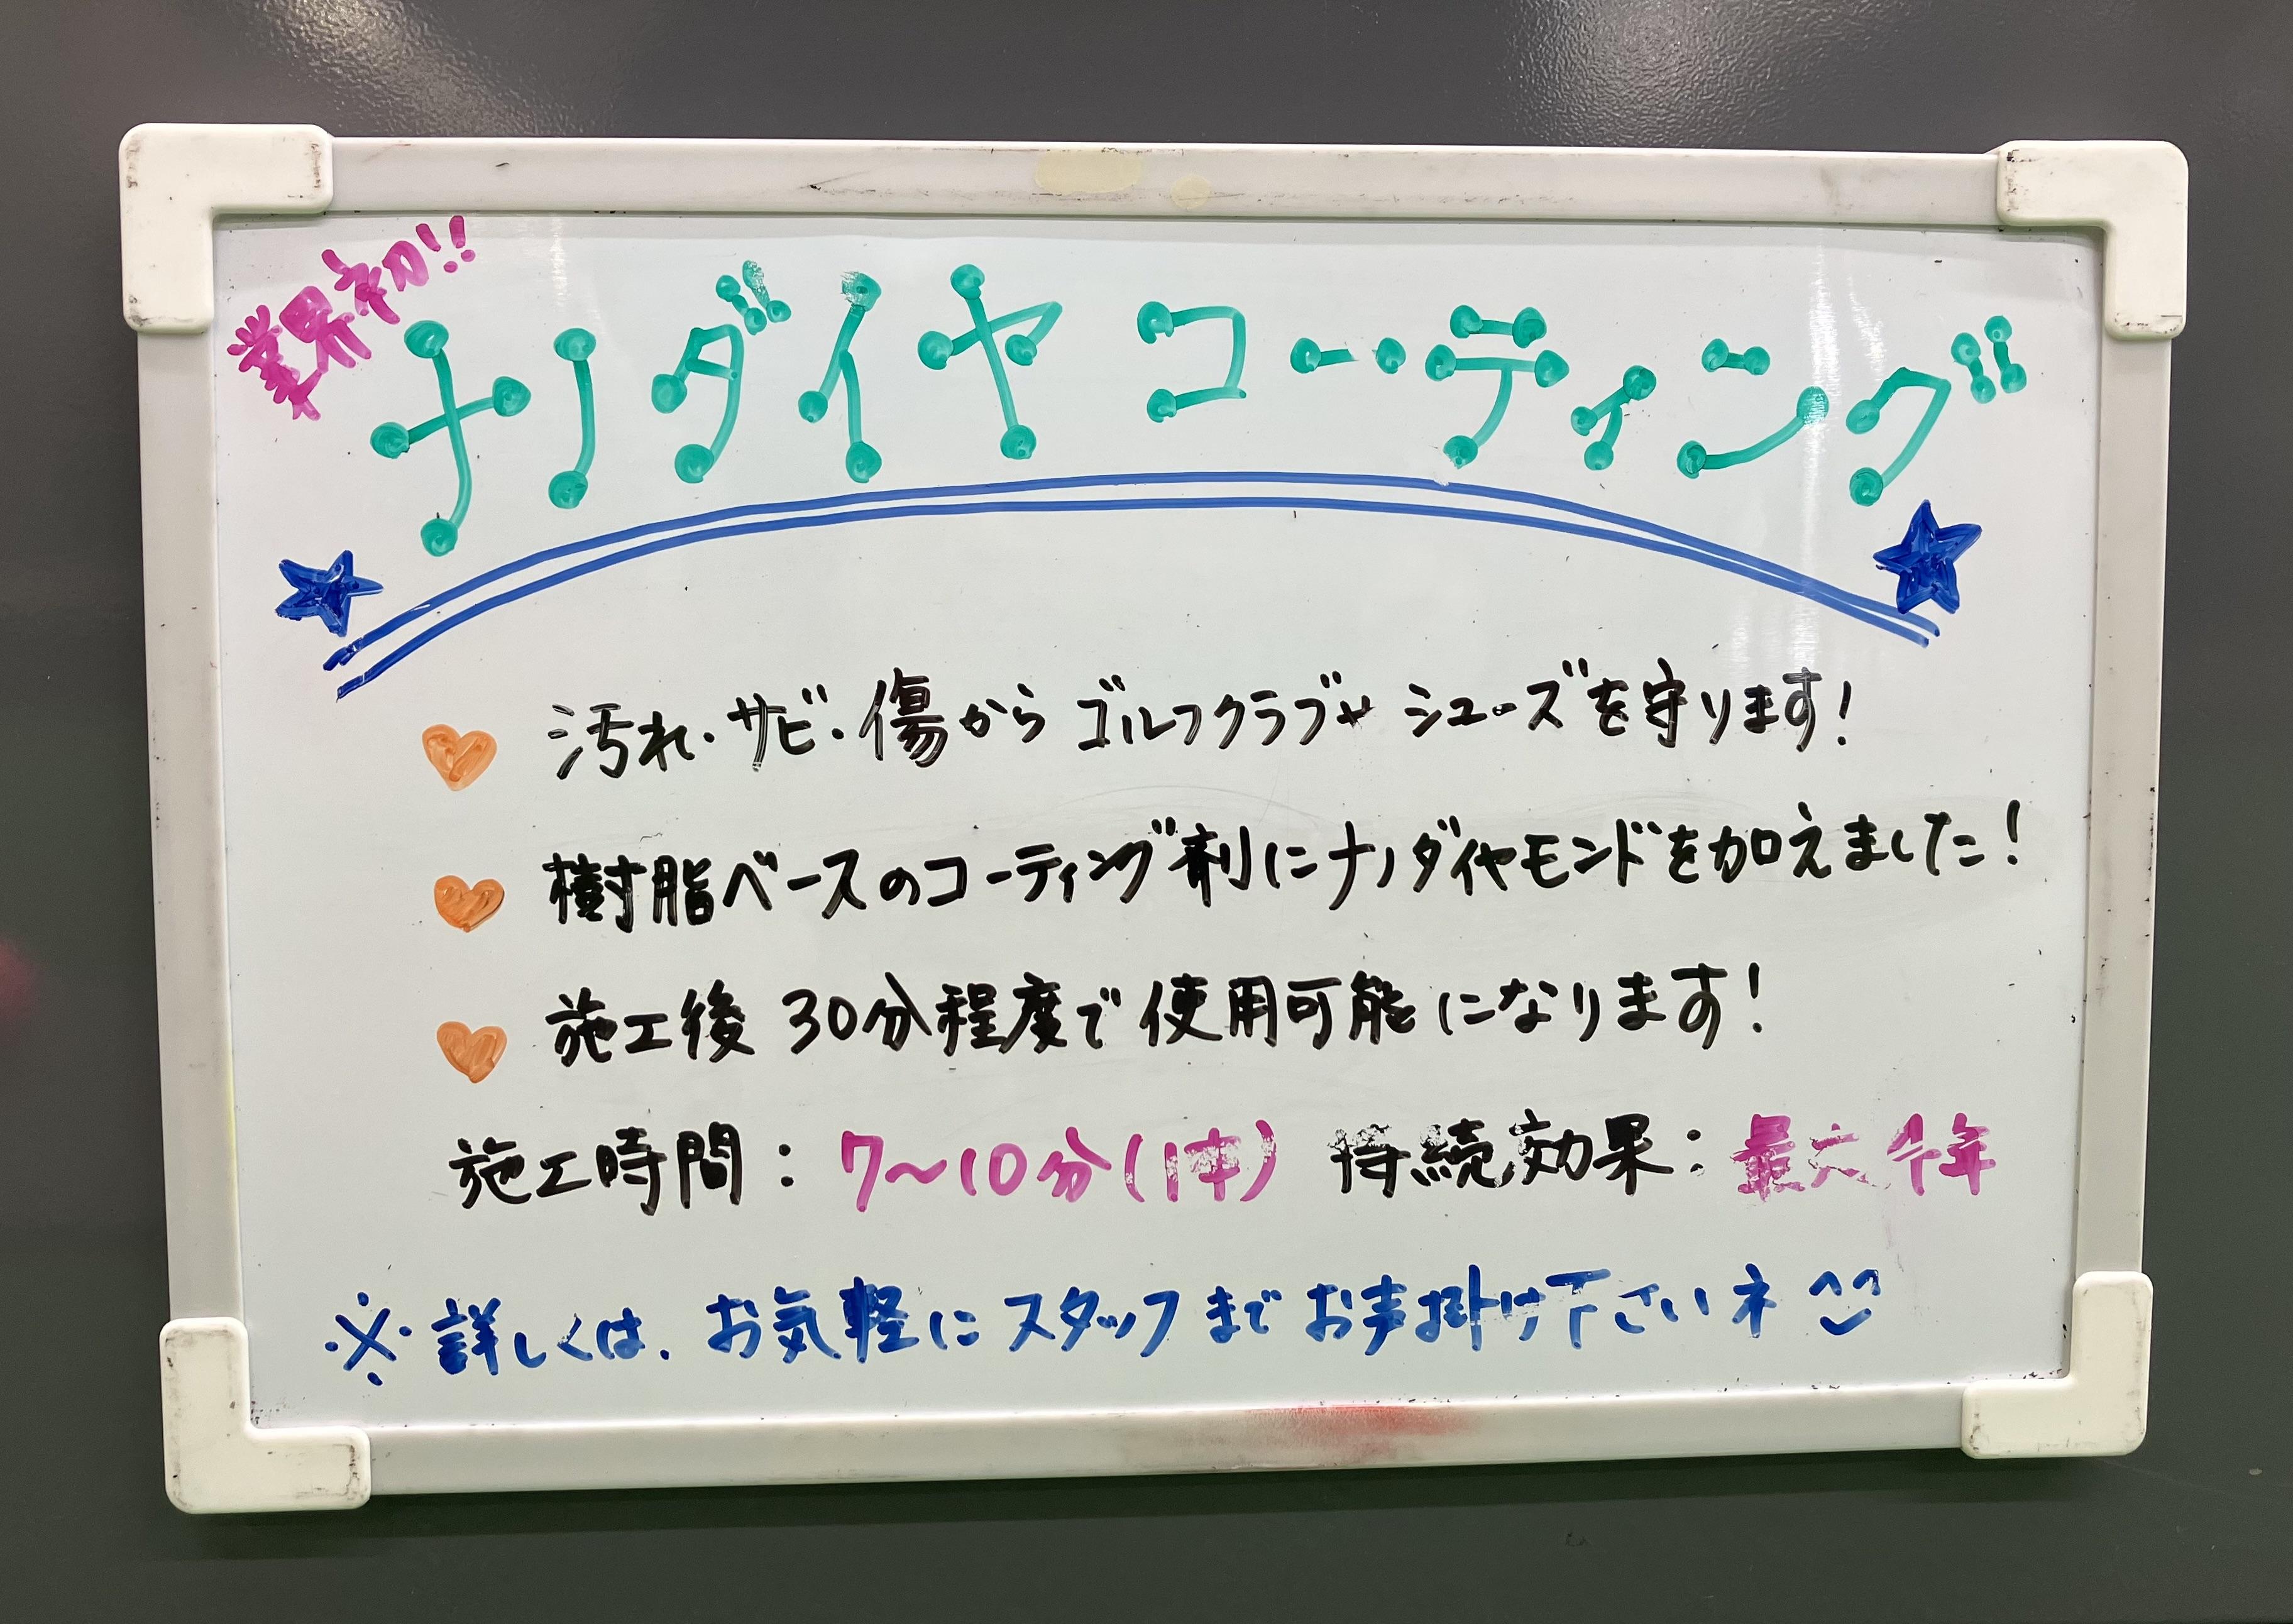 業界初!!
ナノダイヤコーティング
汚れ・サビ・傷からゴルフクラブやシューズを守ります!
樹脂ベースのコーティング剤にナノダイヤモンドを加えました!
施工後30分程度で使用可能になります!
施工時間:7〜10分(1本) 持続効果:最大半年
※詳しくは、お気軽にスタッフまでお声掛け下さいネ